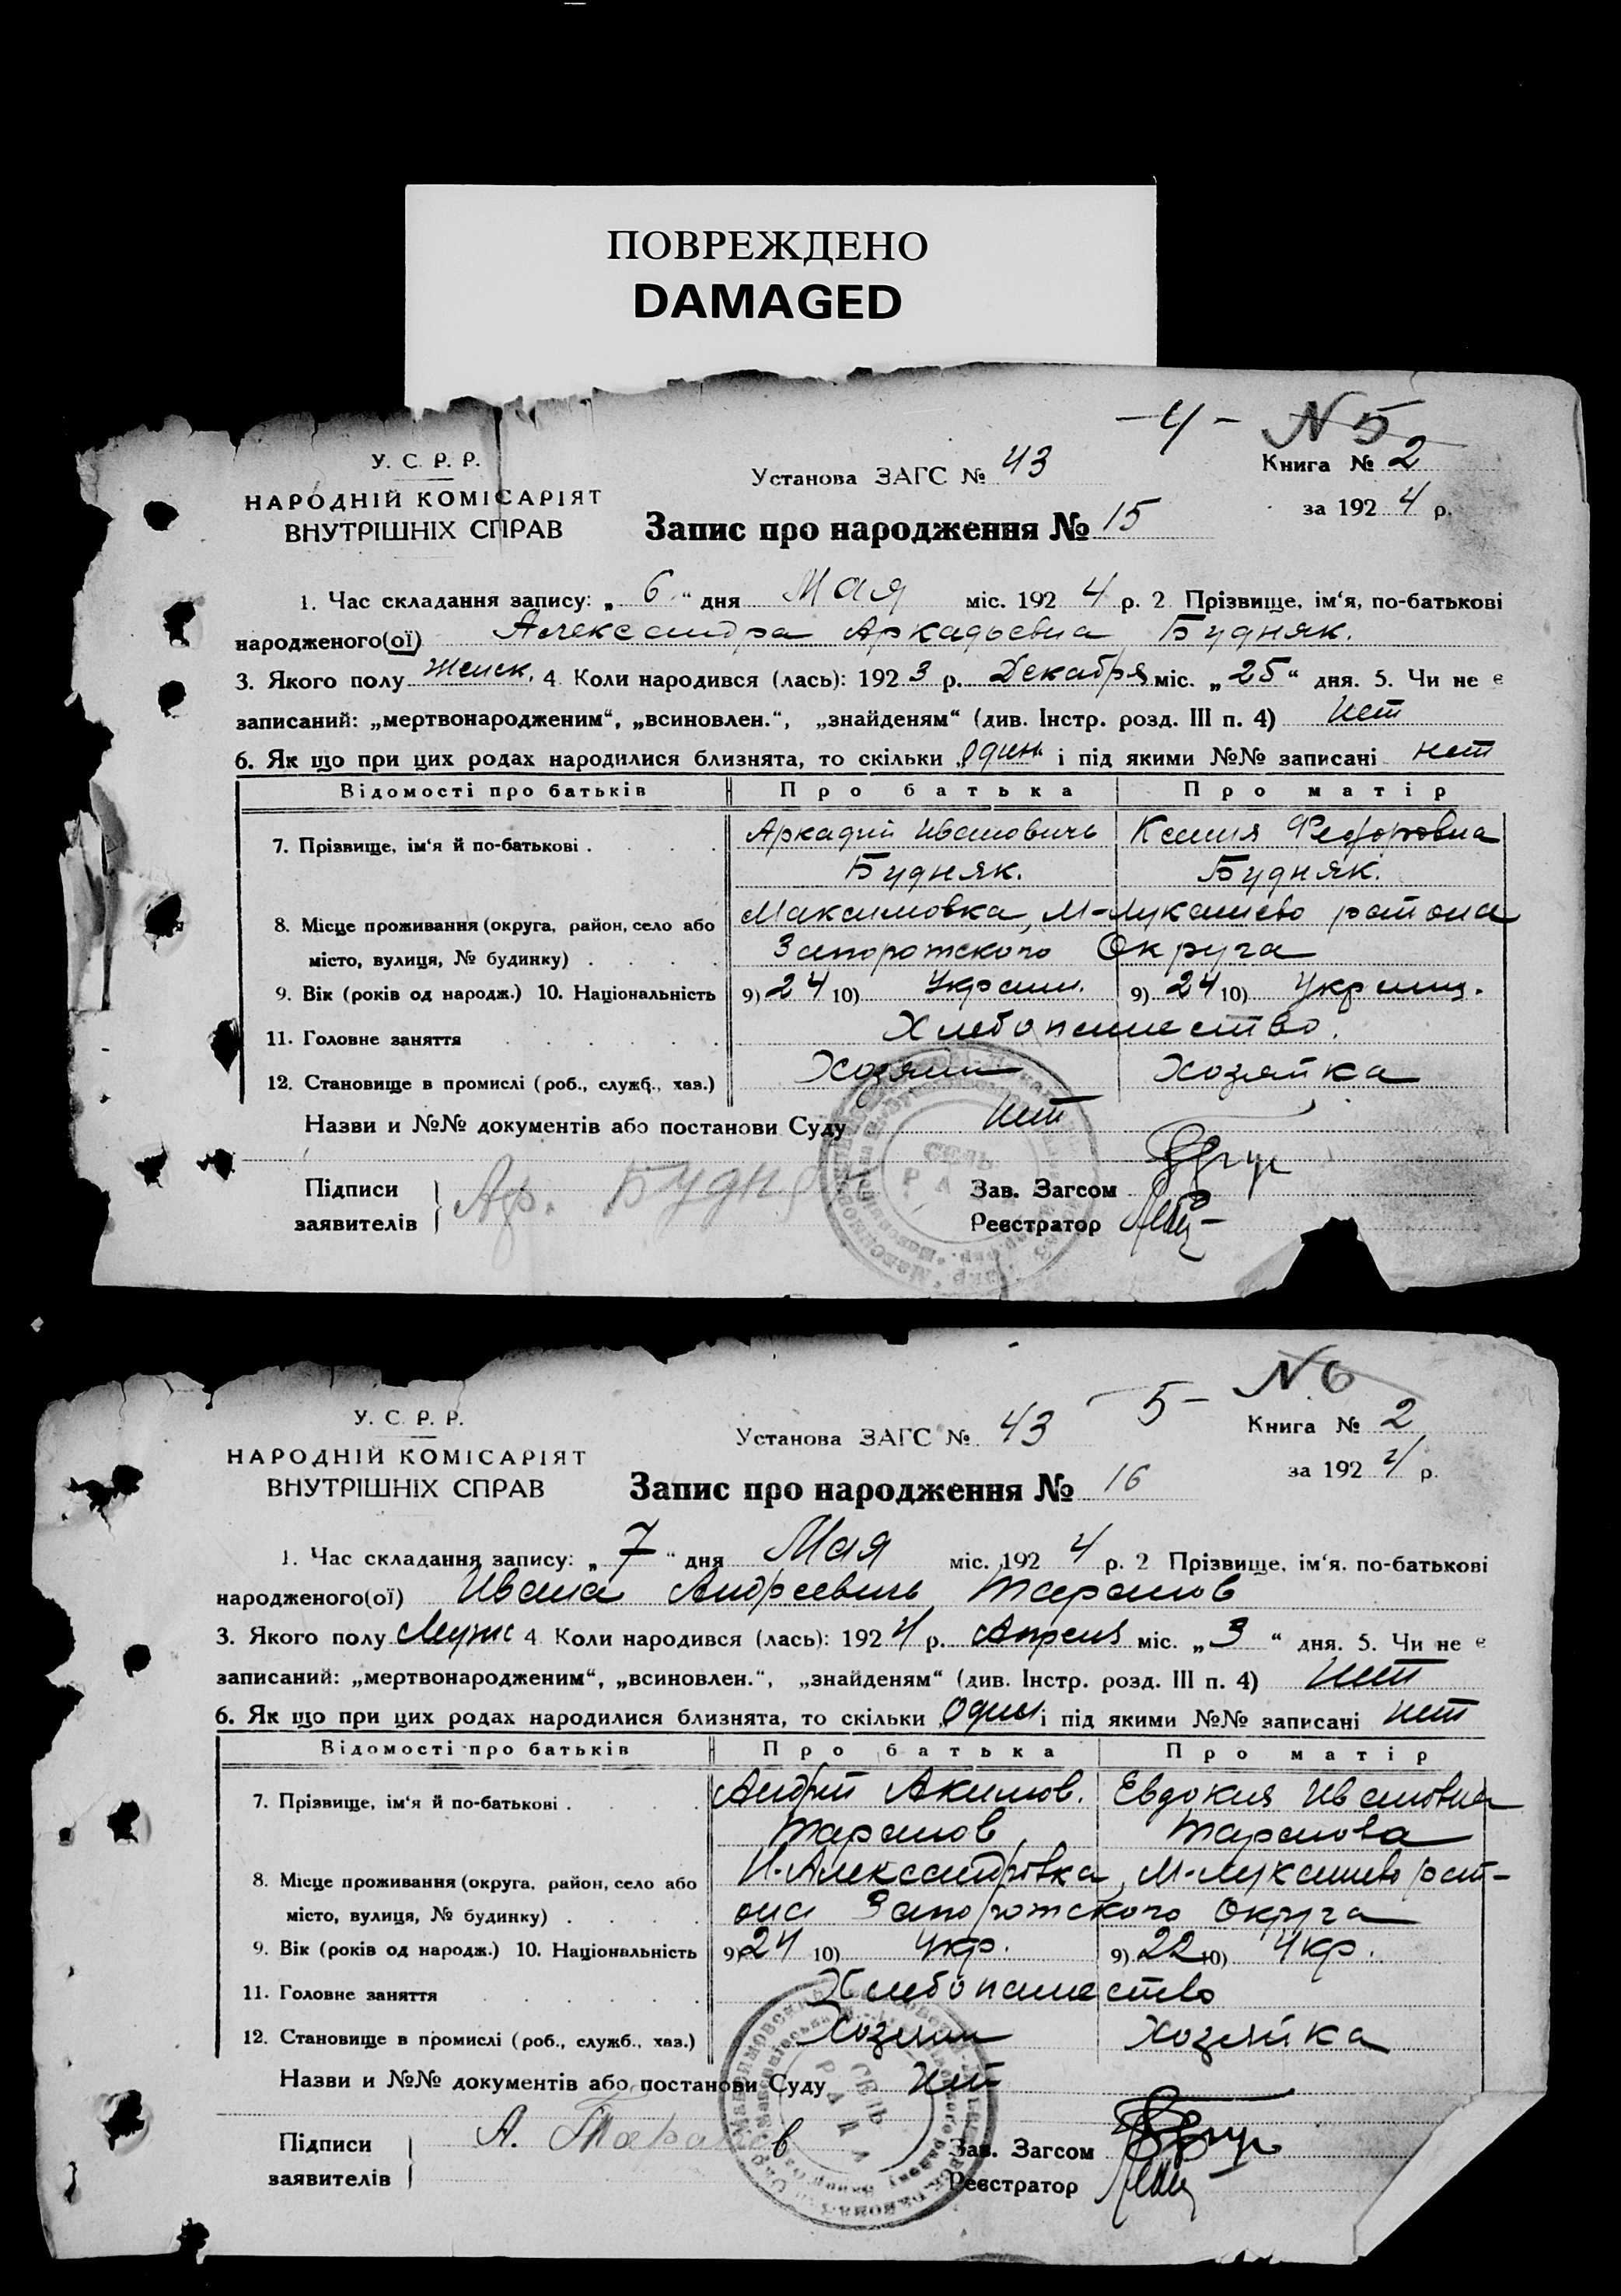 ПОВРЕЖДЕНО
DAMAGED
-4- N 5
У. С. Р. Р.
НАРОДНІЙ КОМІСАРІЯТ
ВНУТРІШНІХ СПРАВ
Установа ЗАГС № 43
Книга № 2
за 1924 р.
Запис про народження № 15
1. Час складання запису: „6“ дня Мая міс. 1924 р. 2 Прізвище, ім‘я, по-батькові
народженого(ої) Александра Аркадьевна Будняк.
3. Якого полу Женск. 4 Коли народився (лась): 1923 р. Декабря міс. „25“ дня. 5. Чи не є
записаний: „мертвонародженим“, „всиновлен.“, „знайденям“ (див. Інстр. розд. III п. 4) Нет
6. Як що при цих родах народилися близнята, то скільки „один“ і під якими №№ записані нет
Відомості про батьків Про батька Про матір
7. Прізвище, ім‘я й по-батькові . . . . Аркадий Ивановичь Ксения Федоровна
Будняк. Будняк.
8. Місце проживання (округа, район, село або Максимовка, М-Лукашево района
місто, вулиця, № будинку) . . . . Запорожского Округа
9. Вік (років од народж.) 10. Національність 9) 24 10) Украин. 9) 24 10) Украинц.
11. Головне заняття . . . . . . Хлебопашество.
12. Становище в промислі (роб., служб., хаз.) Хозяин Хозяйка
Назви и №№ документів або постанови Суду Нет
Підписи
заявителів
Ар. Будня
СЕЛЬ
РАДА
Зав. Загсом
Реєстратор
-5- N 6
У. С. Р. Р.
НАРОДНІЙ КОМІСАРІЯТ
ВНУТРІШНІХ СПРАВ
Установа ЗАГС № 43
Книга № 2
за 1924 р.
Запис про народження № 16
1. Час складання запису: „7“ дня Мая міс. 1924 р. 2 Прізвище, ім‘я, по-батькові
народженого(ої) Ивана Андреевичь Таранов
3. Якого полу Мужс 4 Коли народився (лась): 1924 р. Апреля міс. „3“ дня. 5. Чи не є
записаний: „мертвонародженим“, „всиновлен.“, „знайденям“ (див. Інстр. розд. III п. 4) Нет
6. Як що при цих родах народилися близнята, то скільки „один і під якими №№ записані нет
Відомості про батьків Про батька Про матір
7. Прізвище, ім‘я й по-батькові . . . . Андрій Акимов. Евдокия Ивановна
Таранов, Таранова
8. Місце проживання (округа, район, село або Н-Александровка, М-Лукашево рай-
місто, вулиця, № будинку) . . . . она Запорожского Округа
9. Вік (років од народж.) 10. Національність 9) 24 10) Укр. 9) 22 10) Укр.
11. Головне заняття . . . . . . Хлебопашество
12. Становище в промислі (роб., служб., хаз.) Хозяин Хозяйка
Назви и №№ документів або постанови Суду Нет
Підписи
заявителів
А. Таранов
СЕЛЬ
РАДА
Зав. Загсом
Реєстратор